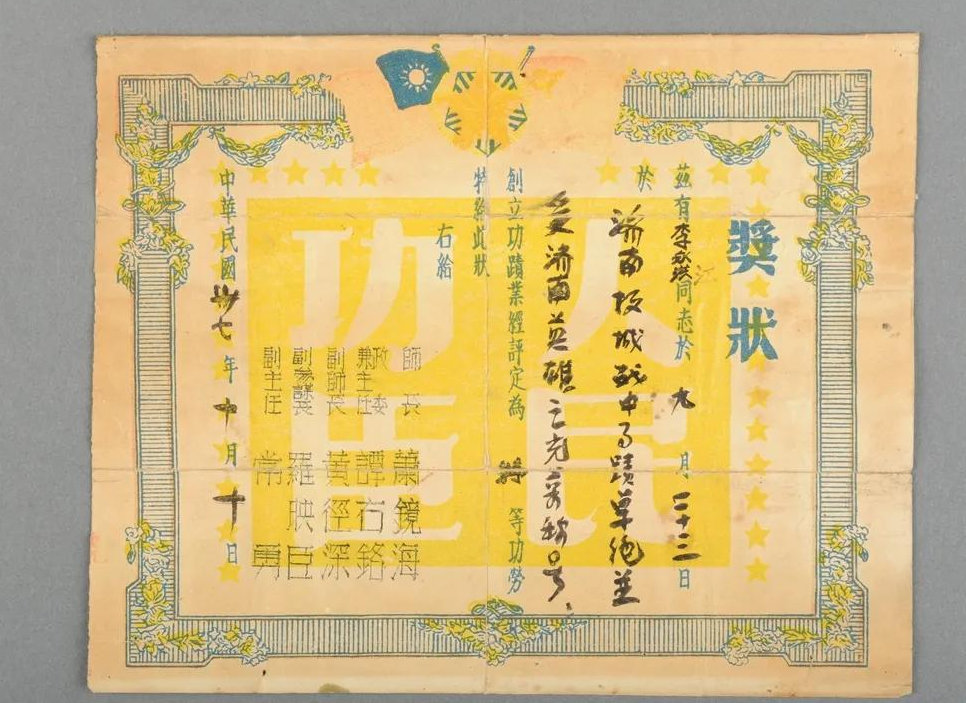 獎狀
茲有李永洪同志於九月二十三日
江
於濟南攻城战中事蹟卓绝並
受濟南英雄之光荣称号
創立功蹟業經評定為特等功勞
特給此狀
右給
人民功臣
師長 蕭鏡海
政委兼主任 譚右銘
副師長 黃徑深
副參謀長 羅映臣
副主任 常勇
中華民國卅七年十月十日